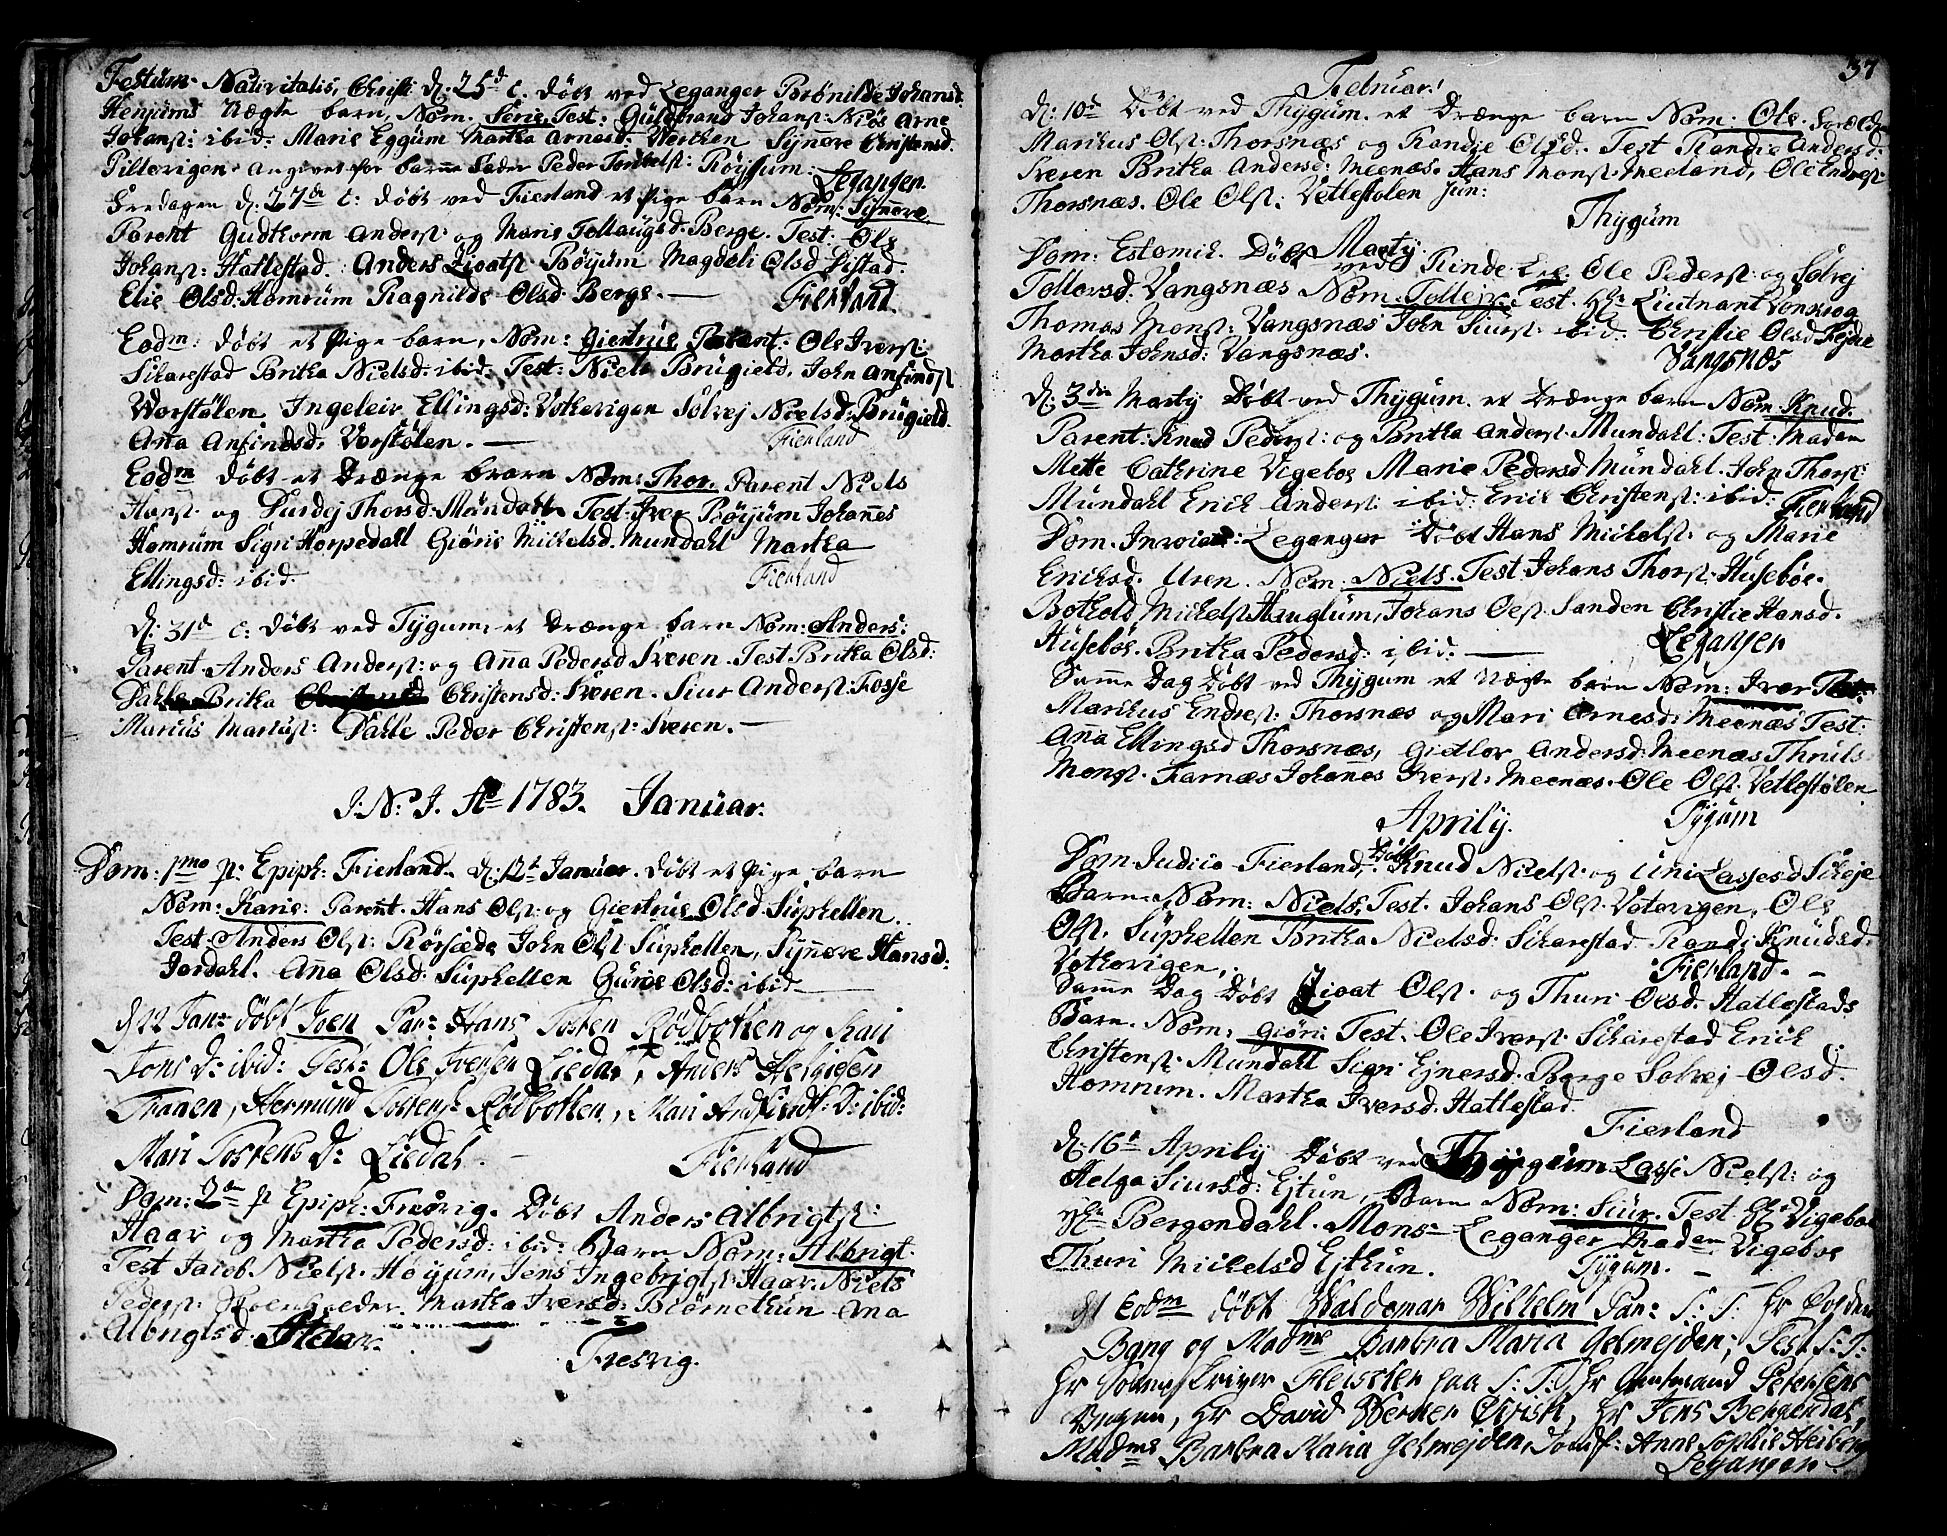 Festum Nativitatis Christi d: 25d t. Döbt ved Leganger Brönilde Johansd:
Henjums Uægte barn, Nom. Serie Test: Guldbrand Johans: Niels Arne
Johanst: ibid: Marie Eggüm Martha Arnesd: Synnöve Christensd.
angivet for barne fader Peder Röysum: Leganger.
Fredagen d. 27de t: döbt ved Fierland et Pige barn Nom: Synnöve.
Parent Gudthorm Anderst: og Maris Berge. Test: Ole
Johanst: Hatlestad. Anders Livatst Böyum Magdeli Olsd Distad.
Elie Olsd: Homrum Ragnilde Olsd Berge. — Fierland.
Eodm: döbt et Pige barn, Nom: Giertrue Parent: Ole Iverst:
Skarestad Britha Nielsd: ibid: Test: Niels Brügield, John Anfindst
Vorstölen Ingeleiv Ellingsd: Votkevigen Solvej Nielsd: Brügield.
Ana Anfindsd: Vorstölen. — Fierland
Eodm döbt et Drænge barn Nom: Thor. Parent Niels
Hanst og Durdej Thorsd: Mündahl Test: Iver Böyum Johannes
Homrum Sigri Horpedahl Giörie Mickelsd. Mundahl Martha
Ellingsd: ibid. Fierland
d: 31d t: döbt ved Tygum, et Drænge barn Nom: Anders:
Parent Anders Anderst: og Ana Pedersd Sveren. Test Britha Olsd:
Dahle Britha Christensd: Sveren. Siur Anderst: Fosse
Marcus Marcust: Dahle Peder Christenst: Sveren. —
J: N: J. Ao 1783. Januar.
Dom: 1mo p: Epiph: Fierland. d: 12t Januar. döbt et Pige barn
Nom: Karie: Parent. Hans Olst: og Giertrue Olsd: Suphellen.
Test: Anders Olst: Rörsæde John Olst Suphellen, Synnöve Hansd:
Jordahl. Ana Olsd: Suphellen Gurie Olsd: ibid —
d 22 Jan: döbt Joen Par: Hans Tosten Rödbotten og Kari
Jons D: ibid: Test: Ole Iversen Liedal, Anders
Hermund Tostens: Rödbotten, Mari D: ibid:
Mari Tostens D: Liedal. Fierland
Dom: 2da p Epiph: Fresvig. Döbt Anders Albrigtst:
Haar og Martha Pedersd: ibid: Barn Nom: Albrigt.
Test Jacob Nielst: Höyum, Jens Ingebrigtst Haar, Niels
Pederst: Martha Iversd: Biörnethun Ana
Albrigtsd. Haar. Fresvig.
37
Februar:
d: 10d Döbt ved Thygum et Drænge barn Nom: Ole. Foræld:
Marthus Olst: Thorsnæs og Randie Olsd: Test Randie Andersd:
Sveren Britha Andersd: Meenæs. Hans Monst: Meeland, Ole Endrest
Thorsnæs. Ole Olst: Vetlestolen jun:
Thygum
Marty
Dom: Estomih. Döbt ved Rinde Ole Pederst: og Solvej
Tollersd: Vangsnæs Nom: Tolleiv Test. Hr Liutnant Vonkrog
Thomas Monst: Vangsnæs John Siurst: ibid: Christie Olsd Fejde
Martha Johnsd: Vangsnæs. Vangsnæs
d: 3die Marty Döbt ved Thygum et Drænge barn Nom: Knud.
Parent: Knud Pederst: og Britha Anderst: Mundahl: Test: Madam
Mette Cathrine Vigeboe Marie Pedersd Mundahl. John Thorst:
Mundahl Erich Anderst: ibid: Erich Christenst: ibid: Fierland
Dom. Leganger Döbt Hans Mickelst: og Marie
Erichsd. Uren. Nom: Niels. Test: Johans Thorst: Huseböe.
Bothold Mickelst Hauglum, Johans Olst. Sanden Christie Hansd.
Huseböe. Britha Pedersd: ibid: — Leganger
Samme Dag Döbt ved Thygum et Uægte barn Nom: Iver
Marthus Endrest: Thorsnæs og Mari Arnesd: Meenæs Test:
Ana Ellingsd Thorsnæs, Gietlov Andersd: Meenæs Thruls
Monst: Farnæs Johannes Iverst: Meenæs. Ole Olst: Vetlestölen.
Aprily. Tygum
Dom Judica Fierland, Döbt Knud Nielst: og Uni Lassesd Skeje
Barn. Nom: Niels. Test: Johans Olst Votevigen, Ole
Olst. Suphellen Britha Nielsd: Skarestad. Randi Knudsd.
Votkevigen. Fierland. —
Samme Dag Döbt Livat Olst. og Thuri Olsd. Hatlestads
Barn. Nom: Giöri: Test: Ole Iverst: Skarestad Erich
Christenst. Mundahl Sigri Ejnersd: Berge Solvej Olsd.
Homrum. Martha Iversd. Hatlestad.
Fierland
d: 16d Aprily Döbt ved Thygum Lasse Nielst: og
Helga Siursd: Ejtun, Barn Nom: Siur. Test. Hr Vigeboe
Hr Bergendahl. Mons Leganger Madam Vigeboe
Thuri Mickelsd Ejthun. Tygum. —
Eodm döbt Waldemar Wilhelm Par: S: T. Hr
Bang og Madme Barbra Maria Gelmejden, Test. S: T:
Hr Sorenskriver Fleischer paa S: T: Hr Amtmand Petersens
Hr David Werner Qvist, Hr Jens Bergendal,
Madme Barbra Maria Gelmejden, Jomf: Anne Sophie Heiberg
Leganger.